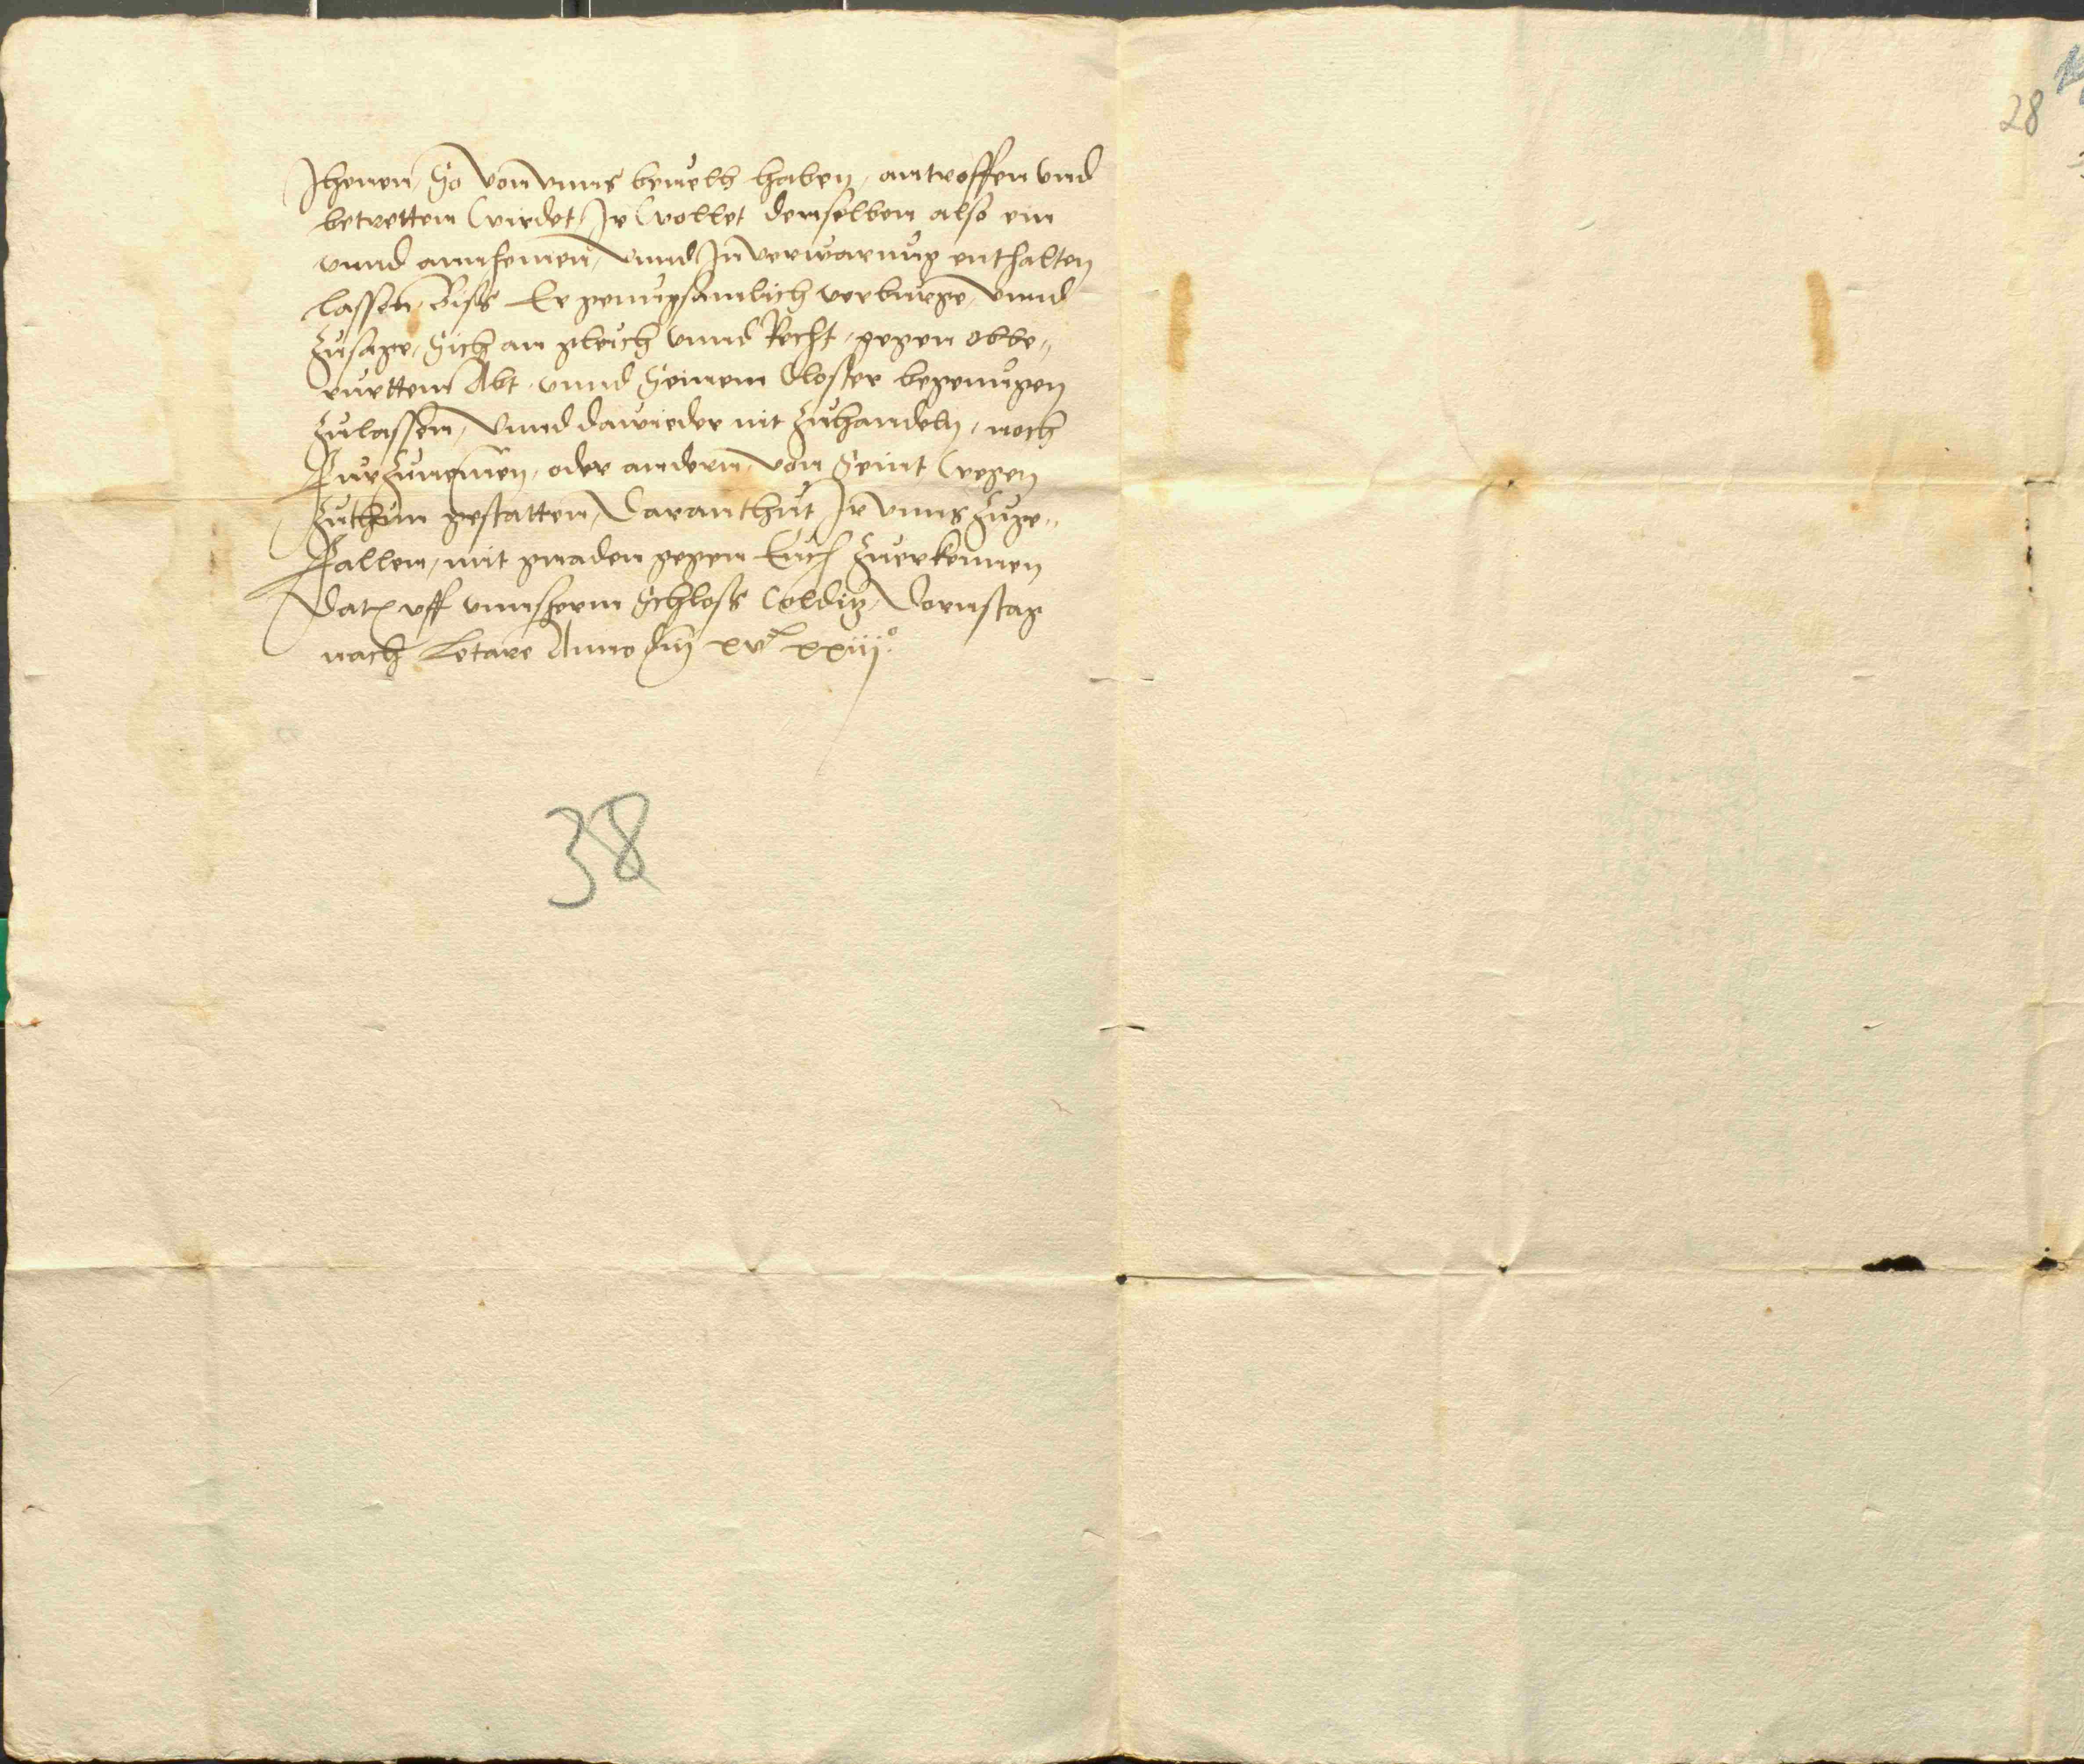 Jhenen, So von vnns beuelh haben, antroffen vnd
betretten wirdet, Jr wollet denselben also ein
vnnd annhemen, vnnd Jn verwarung enthalten
lassen, Biss Er genugsamlich verburge, vnnd
zusage, Sich an gleich vnnd Recht, gegen obbe„
rurttem Abt, vnnd Seinem Closter begenugen
zulassen, vnnd dawieder nit zuhandeln, noch
Furzunemen, oder andern, von Seint wegen
zuthun gestatten, Daran thut Jr vnns zuge„
Fallen, mit gnaden gegen Euch zuerkennen
Dat vff vnnserm Schloss Colditz, Dornstag
nach Letare Anno dni xvc xxiijo
38
28